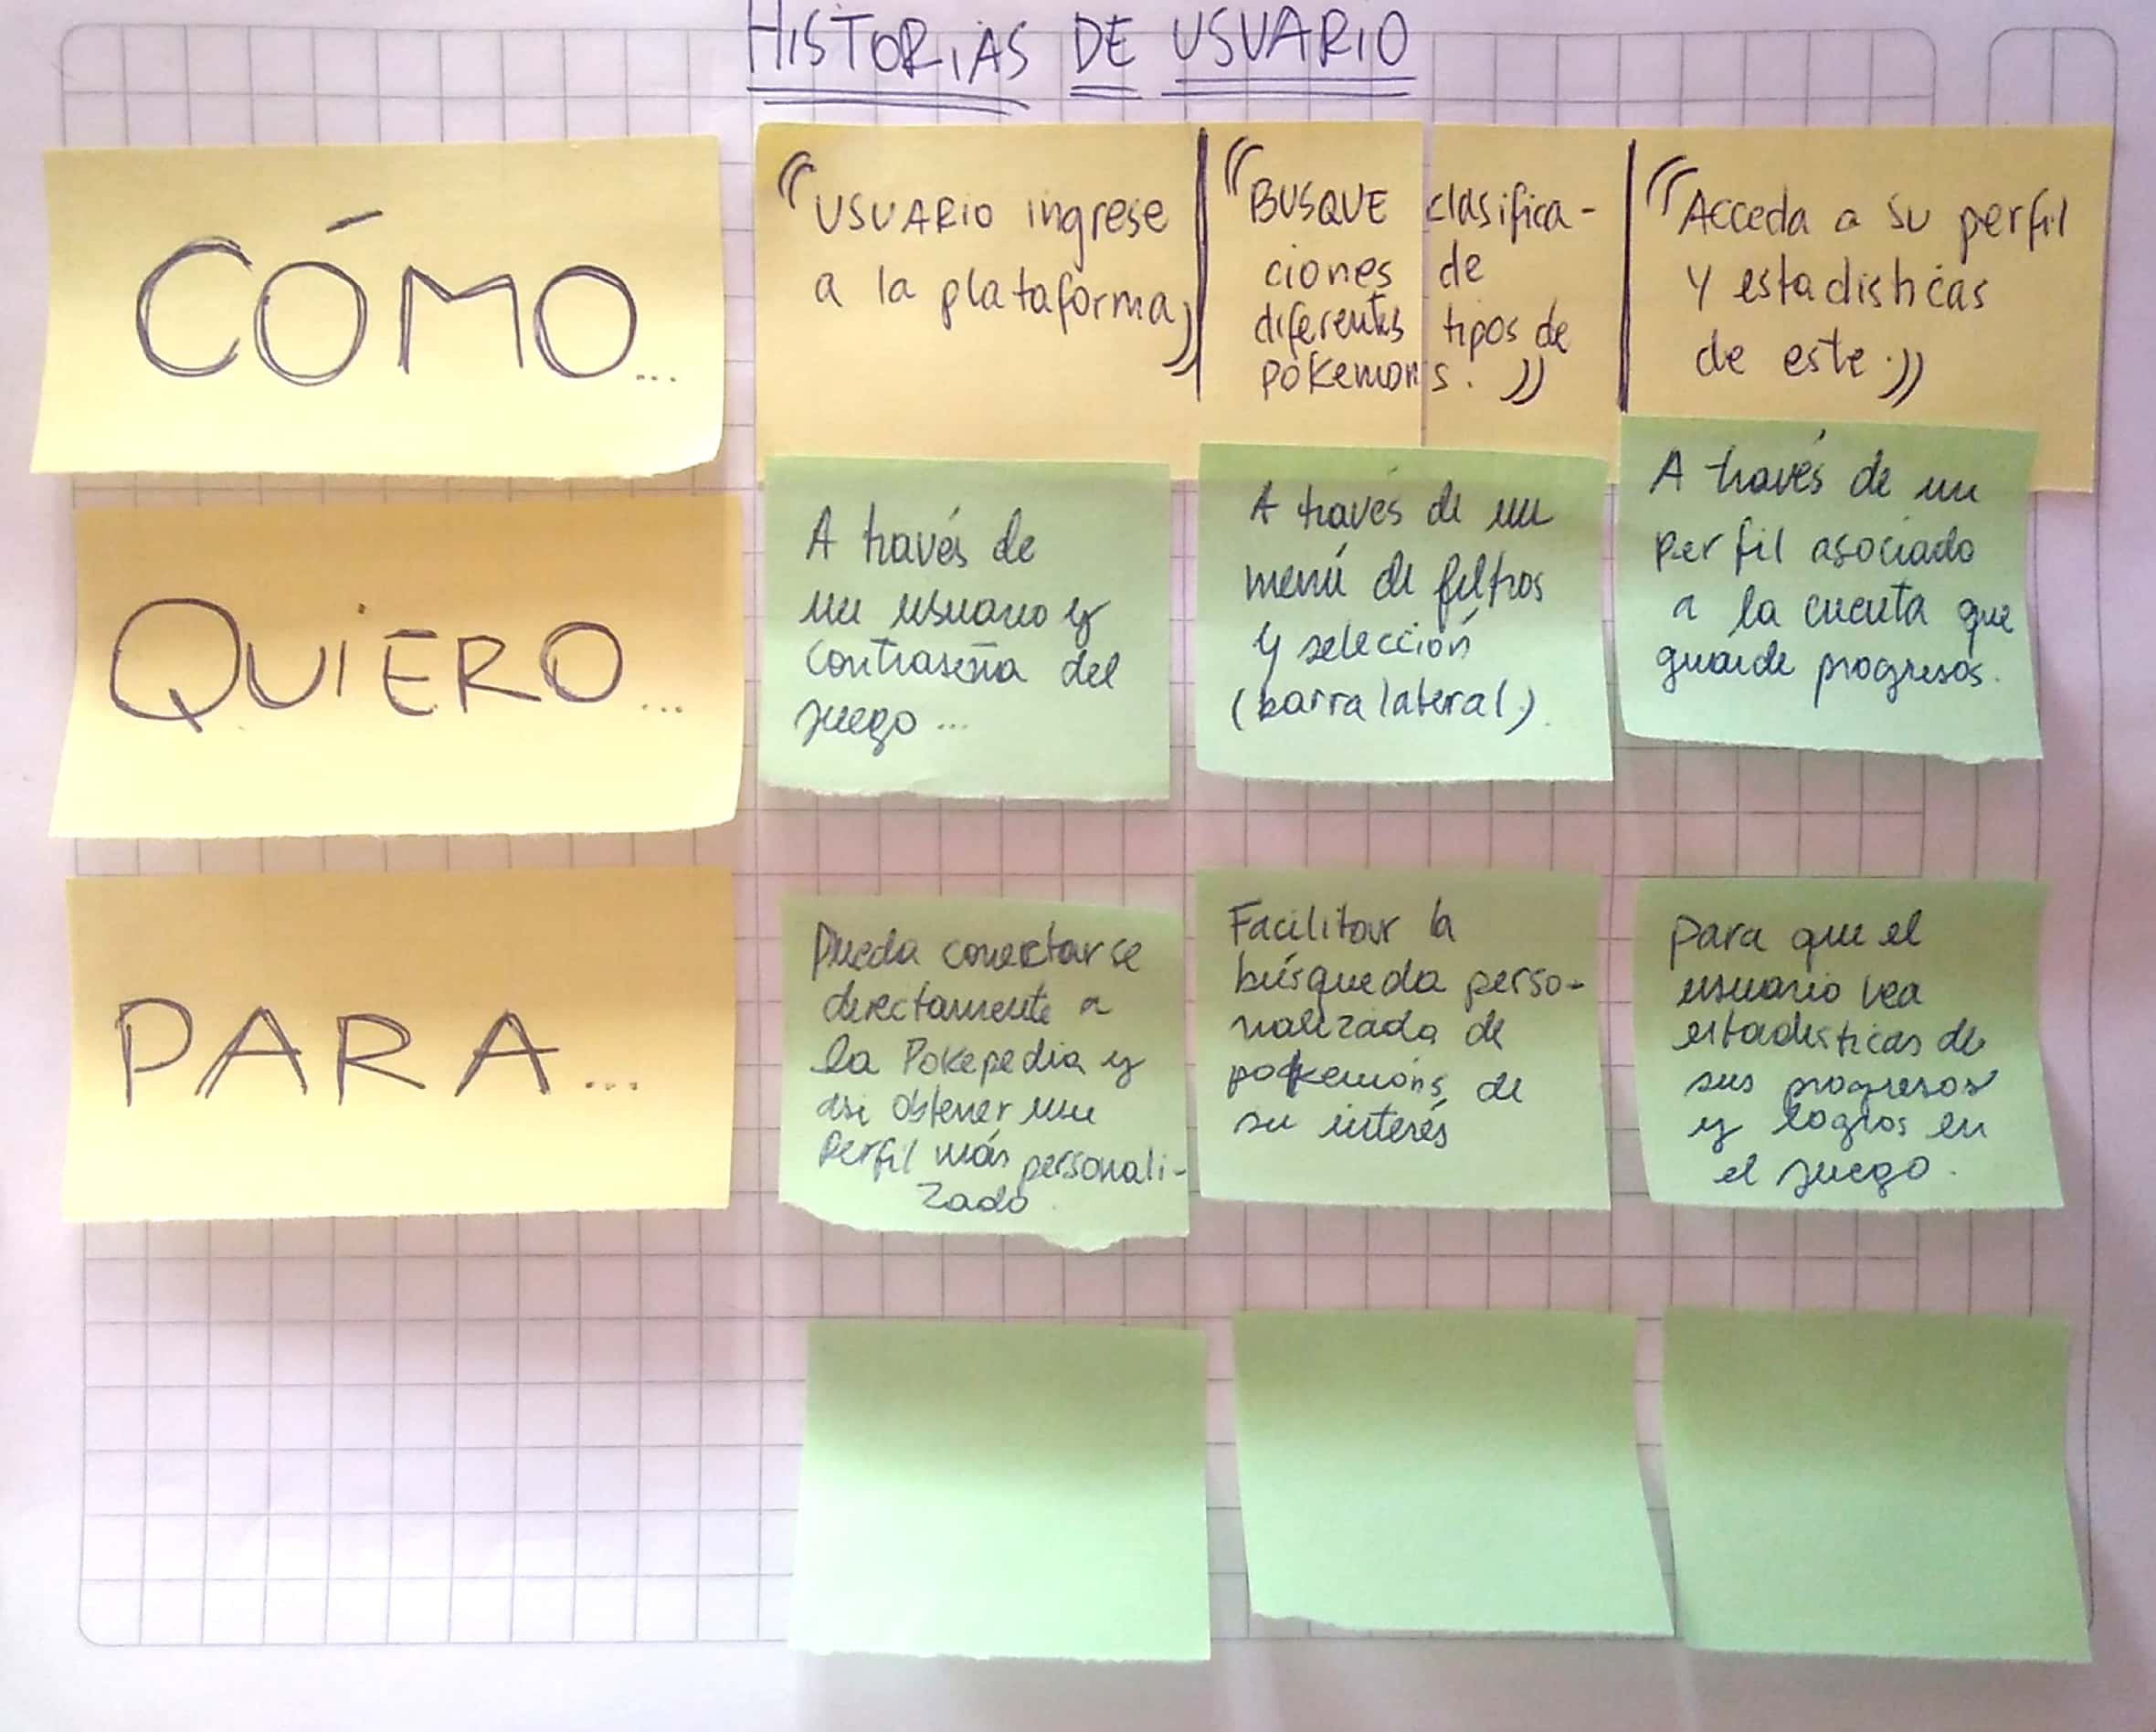 HISTORIAS DE USUARIO
CÓMO...
"USUARIO ingrese
a la plataforma"
"BUSQUE clasifica-
ciones de
diferentes tipos de
pokemons."
"Acceda a su perfil
y estadisticas
de este."
QUIERO...
A través de
un usuario y
contraseña del
juego...
A través de un
menú de filtros
y selección
(barra lateral).
A través de un
perfil asociado
a la cuenta que
guarde progresos.
PARA...
Pueda conectarse
directamente a
la Pokepedia y
asi obtener un
perfil más personali-
zado.
Facilitar la
búsqueda perso-
nalizada de
pokemóns de
su interés
para que el
usuario vea
estadisticas de
sus progresos
y logros en
el juego.